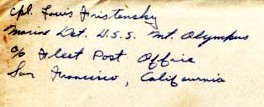 Cpl. Louis Fristensky
Marine Det. U.S.S. Mt. Olympus
c/o Fleet Post Office
San Francisco, California